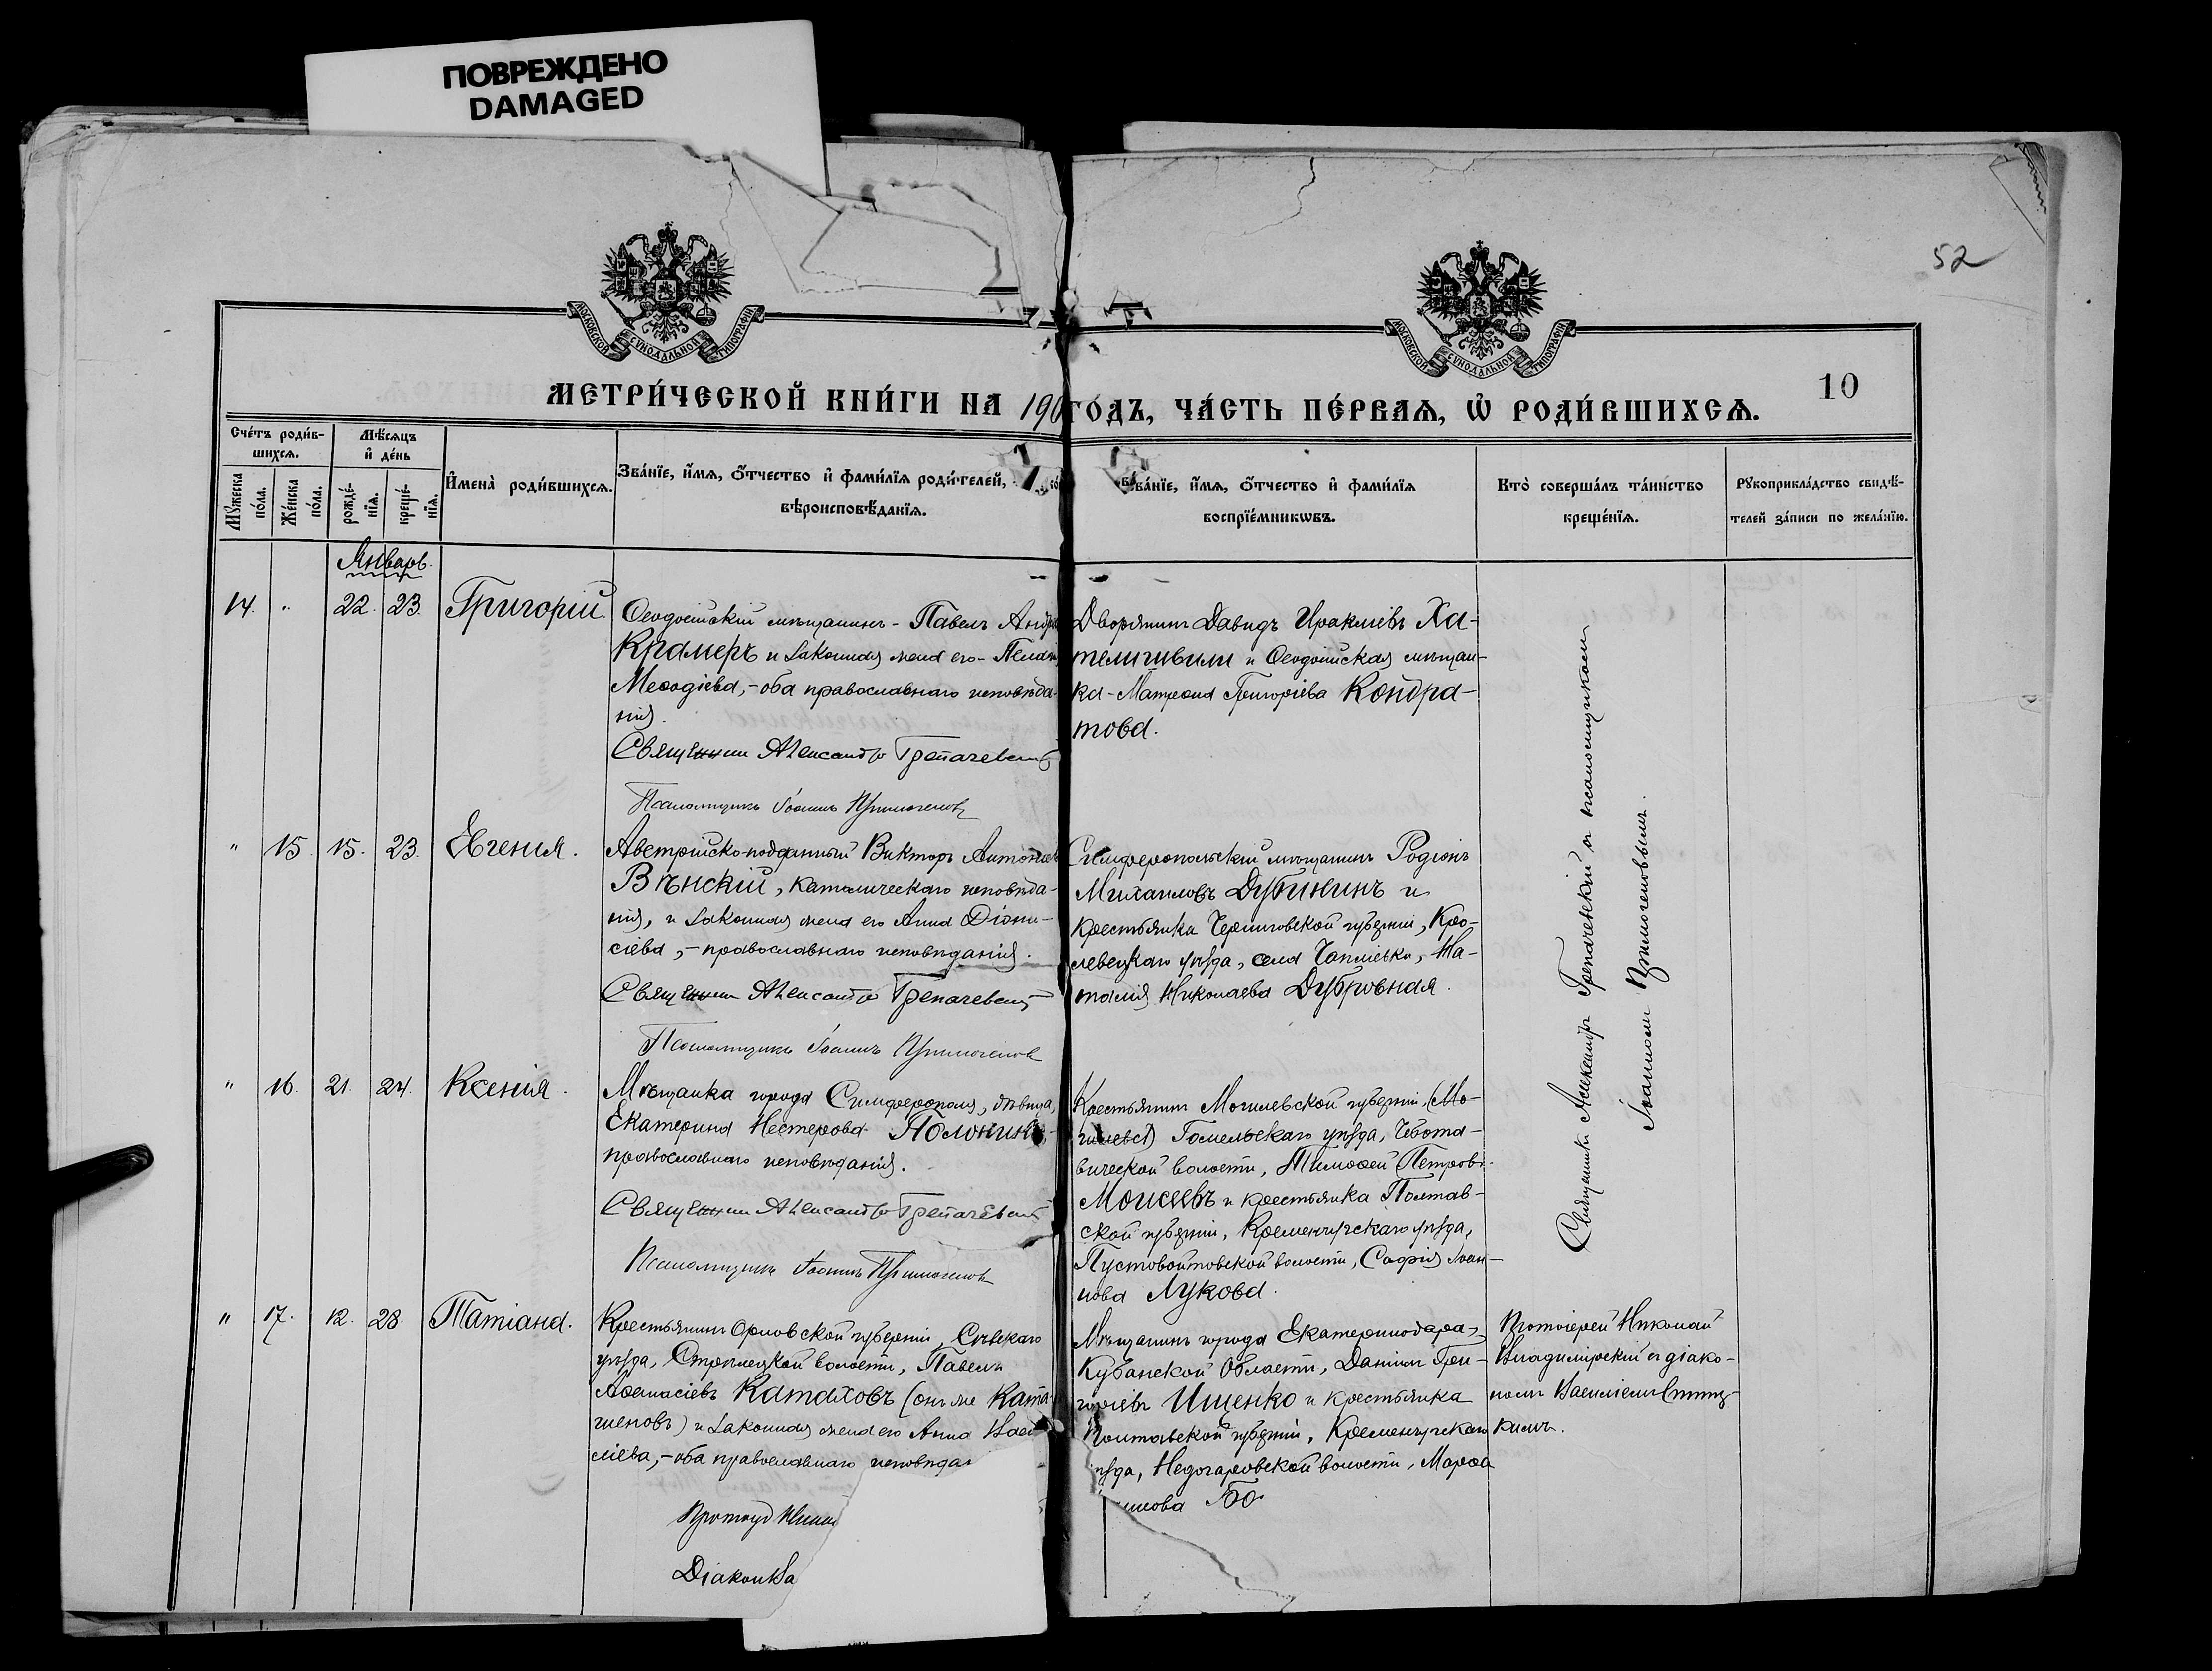 ПОВРЕЖДЕНО
DAMAGED
52
МОСКОВСКОЙ СѴНОДАЛЬНОЙ ТИПОГРАФІИ
МОСКОВСКОЙ СѴНОДАЛЬНОЙ ТИПОГРАФІИ
МЕТРИ́ЧЕСКОЙ КНИ́ГИ НА 190
ГО́ДЪ, ЧА́СТЬ ПЕ́РВАѦ, Ѡ҆ РОДИ́ВШИХСѦ.
10
Сче́тъ роди́в-
шихсѧ.
Мꙋ́жеска по́ла.
Же́нска по́ла.
Мѣ́сѧцъ
и҆ де́нь
рожде́-
нїѧ.
креще́-
нїѧ.
И҆мена̀ роди́вшихсѧ.
Зва́нїе, и҆́мѧ, ѻ҆́тчество и҆ фами́лїѧ роди́телей,
вѣроисповѣ́данїѧ.
Зва́нїе, и҆́мѧ, ѻ҆́тчество и҆ фами́лїѧ
воспрїе́мникѡвъ.
Кто̀ соверша́лъ та́инство
креще́нїѧ.
Рꙋкоприкла́дство свидѣ́-
телей за́писи по жела́нїю.
Январь.
14. " 22. 23. Григорій
Ѳеодосійскій мѣщанинъ - Павелъ
Крамеръ и законная жена его -
Меѳодіева, - оба православнаго исповѣда-
нія.
Священник Александр Трепачевский
Псаломщикъ Іоаннъ Примогенов
Дворянинъ Давидъ Иракліевъ Ха-
телишвили и Ѳеодосійская мѣщан-
ка - Матрона Григоріева Кондра-
това.
" 15. 15. 23. Евгенія.
Австрійско-подданный Викторъ Антоніевъ
Вѣнскій, католическаго исповѣда-
нія, и законная жена его Анна Діони-
сіева, - православнаго исповѣданія.
Священник Александр Трепачевский
Псаломщикъ Іоаннъ Примогенов
Симферопольскій мѣщанинъ Родіонъ
Михаиловъ Дубининъ и
крестьянка Черниговской губерніи, Кро-
левецкаго уѣзда, села Чапліевки, На-
талія Николаева Дубровная.
" 16. 21. 24. Ксенія.
Мѣщанка города Симферополя, дѣвица,
Екатерина Нестерова
православнаго исповѣданія.
Священник Александр Трепачевский
Псаломщикъ Іоаннъ Примогенов
Крестьянинъ Могилевской губерніи, (Мо-
гилевск) Гомельскаго уѣзда, Чебота-
вической волости, Тимоѳей Петровъ
Моисеевъ и крестьянка Полтав-
ской губерніи, Кременчугскаго уѣзда,
Пустовойтовской волости, Софія Іоан-
нова Лукова.
Священникъ Александръ Трепачевскій съ псаломщикомъ
Іоанномъ Примогеновымъ.
" 17. 12. 28. Татіана.
Крестьянинъ Орловской губерніи, Сѣвскаго
уѣзда, Стрѣлецкой волости, Павелъ
Аѳанасіевъ Катаховъ (онъ же Ката-
шеновъ) и законная жена его Анна Васи
ліева, - оба православнаго исповѣдан
Діаконъ Ва
Мѣщанинъ города Екатеринодара,
Кубанской Области, Даніилъ Гри-
горіевъ Ищенко и крестьянка
Полтавской губерніи, Кременчугскаго
уѣзда, Недогарковской волости, Марѳа
Протоіерей Николай
Владимірскій съ діако-
номъ Василіемъ